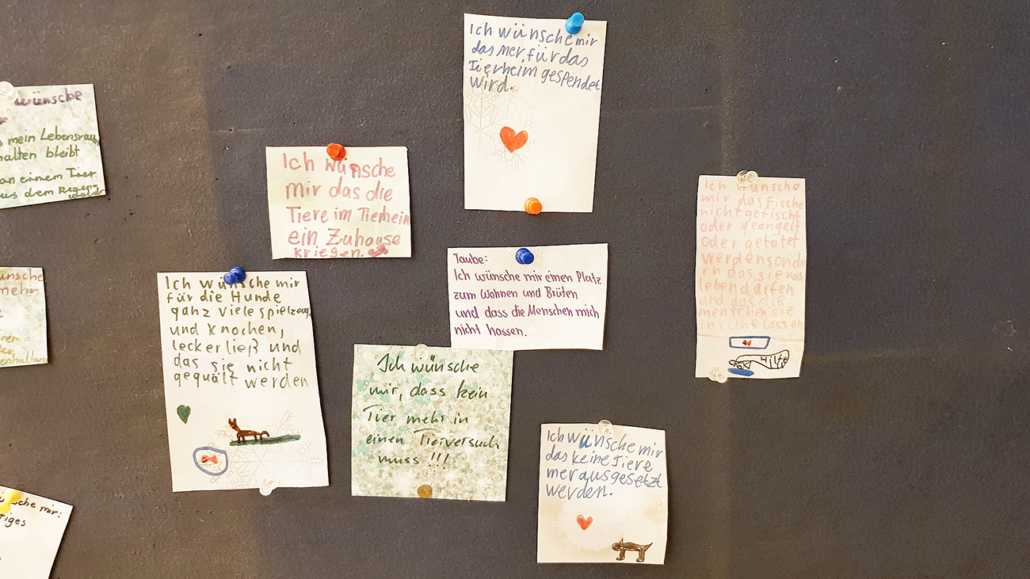 wünsche
mein Lebensrau
halten bleibt
an einem Tier
aus dem Regen
wald
ünsche
mehr
sche mir:
tiges
Ich wünsche mir
für die Hunde
ganz viele spielzeug
und Knochen,
leckerließ und
das sie nicht
gequält werden
Ich wünsche
mir das die
Tiere im Tierheim
ein Zuhause
kriegen.
Ich wünsche mir
das mer für das
Tierheim gespendet
wird.
Taube:
Ich wünsche mir einen Platz
zum Wohnen und Brüten
und dass die Menschen mich
nicht hassen.
Ich wünsche
mir, dass kein
Tier mehr in
einen Tierversuch
muss !!!
Ich wünsche mir
das keine Tiere
mer ausgesetzt
werden.
Ich wünsche
mir das fische
nicht gefischt
oder geangelt
oder getötet
werden sonde
rn das sie noch
leben dürfen
und das die
menschen sie
in ruhe lassen
Hilfe